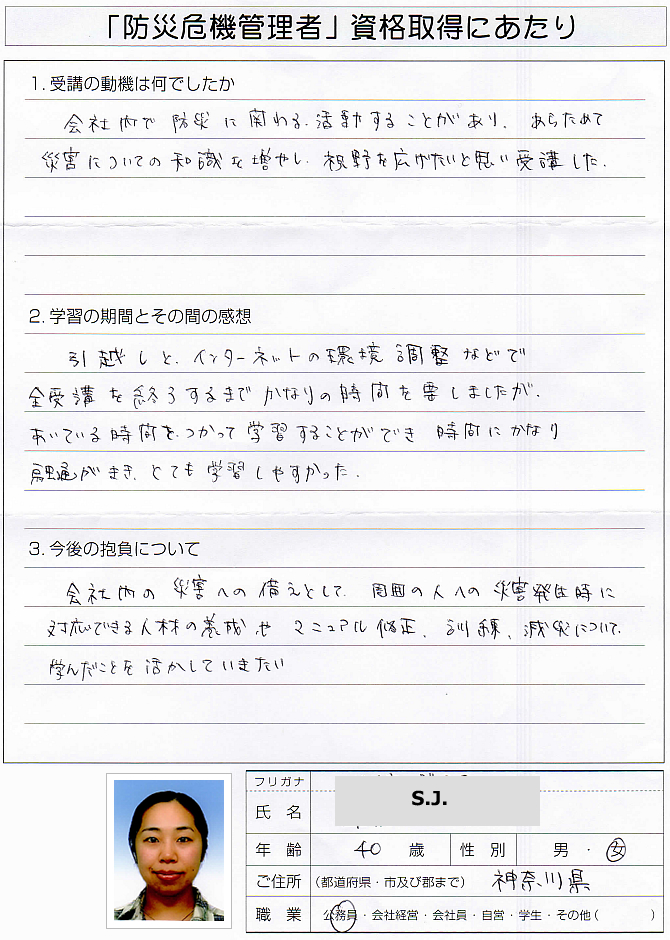 「防災危機管理者」資格取得にあたり
1. 受講の動機は何でしたか
会社内で防災に関わる活動することがあり、あらためて
災害についての知識を増やし、視野を広げたいと思い受講した。
2. 学習の期間とその間の感想
引越しと、インターネットの環境調整などで
全受講を終了するまでかなりの時間を要しましたが、
あいている時間をつかって学習することができ 時間にかなり
融通がきき、とても学習しやすかった。
3. 今後の抱負について
会社内の災害への備えとして、周囲の人への災害発生時に
対応できる人材の養成やマニュアル修正、訓練、減災について、
学んだことを活かしていきたい
フリガナ
氏 名 S.J.
年 齢 40 歳 性 別 男 ・ 女
ご住所 (都道府県・市及び郡まで) 神奈川県
職 業 公務員・会社経営・会社員・自営・学生・その他( )